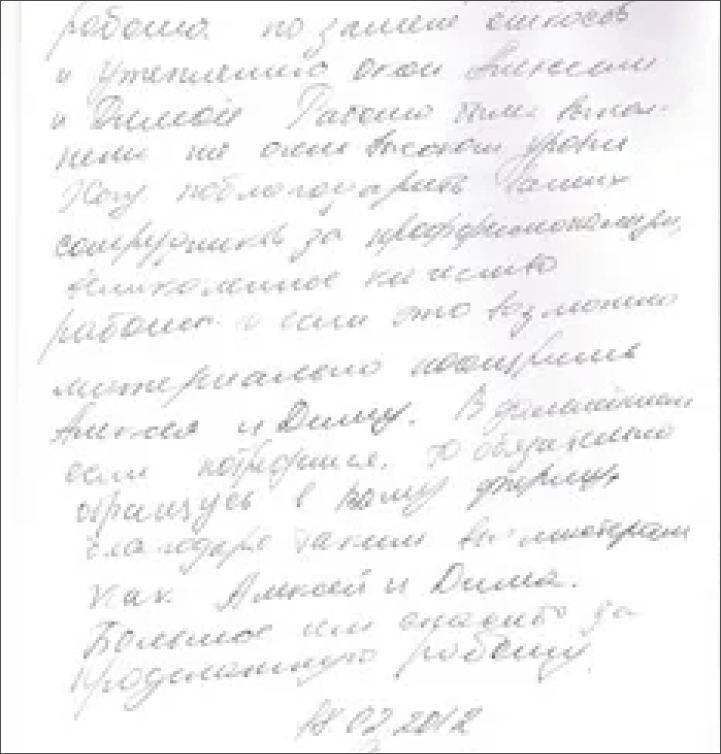 работа по замене откосов
и утеплению окон Алексеем
и Димой Работы были выпол-
нены на очень высоком уровне
Хочу поблагодарить Ваших
сотрудников за профессионализм,
великолепное качество
работы и если это возможно
материально поощрить
Алексея и Диму. В дальнейшем
если потребуется, то обязательно
обращусь в Вашу фирму,
благодаря таким мастерам
как Алексей и Дима.
Большое им спасибо за
проделанную работу.
02.2012